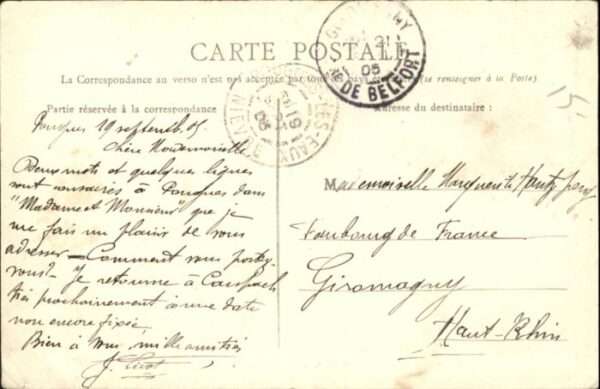 CARTE POSTALE
La Correspondance au verso n'est pas acceptée par tous les pays (se renseigner à la Poste)
Partie réservée à la correspondance
Adresse du destinataire :
GIROMAGNY
21
05
Tre DE BELFORT
POUGUES-LES-EAUX
19
05
NIÈVRE
15
Pougues 19 septemb. 05
Chère Mademoiselle
Deux mots et quelques lignes
sont consacrés à Pougues dans
"Madame et Monsieur" que je
me fais un plaisir de vous
adresser - Comment vous portez
vous? - Je retourne à
très prochainement à une date
non encore fixée.
Bien à vous, mille amitiés
Mademoiselle Marguerite
Faubourg de France
Giromagny
Haut-Rhin